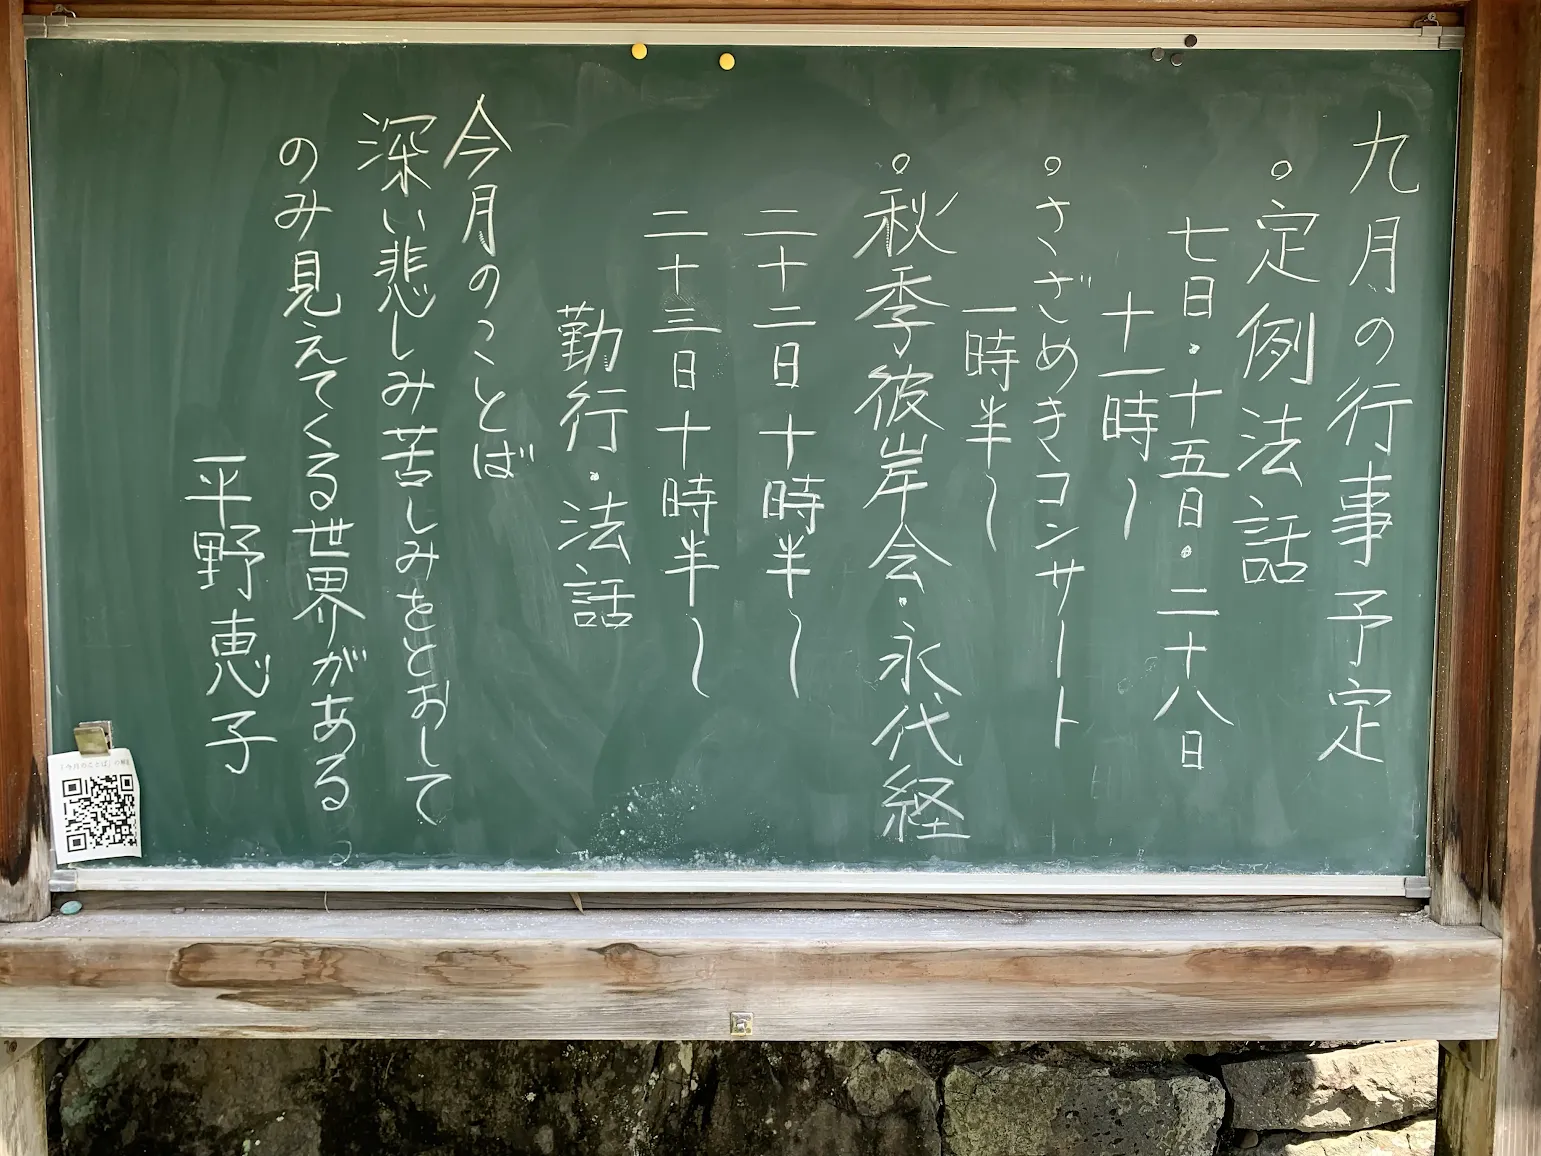 九月の行事予定
○定例法話
七日・十五日・二十八日
十一時〜
○さゝざめきコンサート
一時半〜
○秋季彼岸会・永代経
二十二日十時半〜
二十三日十時半〜
勤行・法話
今月のことば
深い悲しみ苦しみをとおして
のみ見えてくる世界がある。
平野恵子